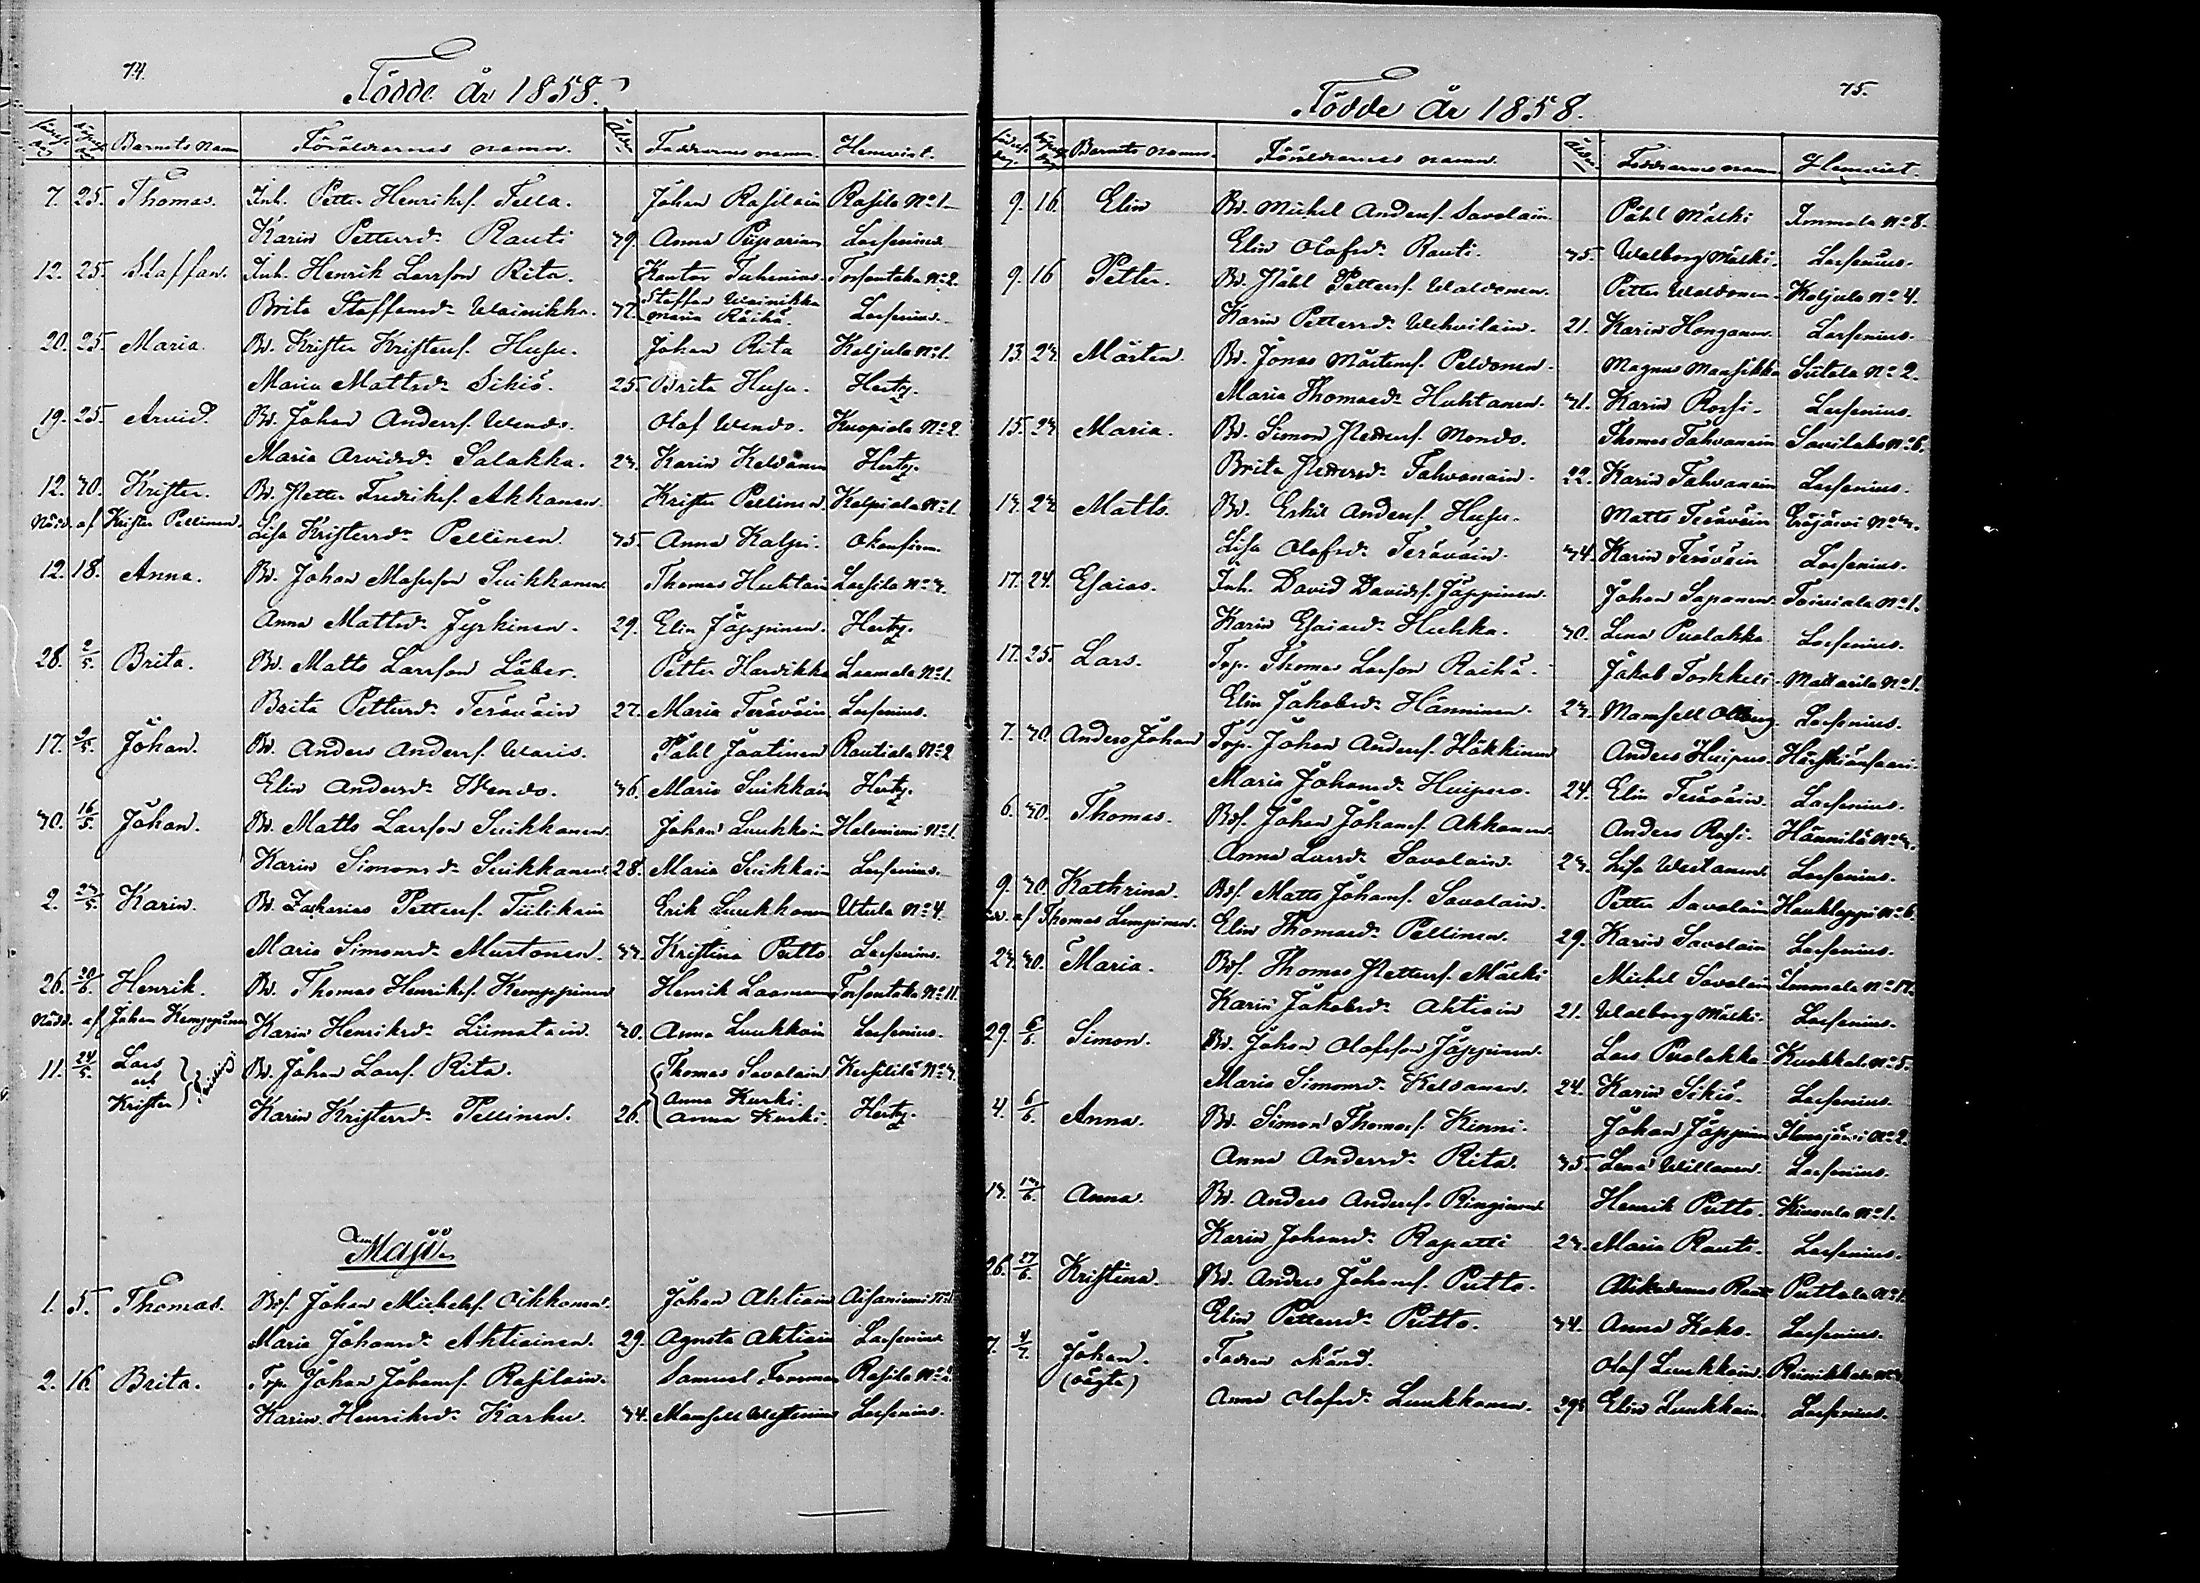 74.
Födde år 1858.
Födelsedag Döpelsedag Barnets namn Föräldrarnes namn. Ålder Faddrarnes namn. Hemvist.
7. 25. Thomas. Inh. Petter Henriks. Tella. Johan Rasilain Rasila No 1.
Karin Pettersd. Rauti 39. Anna Piiparinen Laesenius
12. 25. Staffan. Inh. Henrik Larsson Rita. Kantor Tuhenius Torsontaka No 2.
Brita Staffansd. Wainikka. 32. Staffan Wainikka Maria Räihä. Laesenius.
20. 25. Maria. Bd. Krister Kristers. Husu. Johan Rita Koljula No 1.
Maria Mattsd. Sikiö. 25. Brita Husu. Hertz.
19. 25. Arvid. Bd. Johan Anders. Wendo. Olaf Wendo. Kuopiala No 2.
Maria Arvidsd. Salakka. 23. Karin Keldanen Hertz.
12. 30. Krister. Bd. Petter Fredriks. Akkanen. Krister Pellinen Kolpiala No 1.
Nödd. af Krister Pellinen. Lisa Kristersd. Pellinen. 35. Anna Kolpi. Okonfirm.
12. 18. Anna. Bd. Johan Mass­son Suikkanen Thomas Huhtain Lassila No 3.
Anna Mattsd. Jyrkinen. 29. Elin Jäppinen. Hertz.
28. 2/5. Brita. Bd. Matts Larsson Löber. Petter Hardikka Laamala No 1.
Brita Pettersd. Teräväin 27. Maria Teräväin Laesenius.
17. 9/5. Johan. Bd. Anders Anders. Waris. Påhl Jaatinen Rautiala No 2
Elin Andersd. Wendo. 36. Maria Suikkain Hertz.
30. 16/5. Johan. Bd. Matts Larsson Suikkanen Johan Luukkain Haloniemi No 1.
Karin Simonsd. Suikkanen. 28. Maria Suikkain Laesenius.
2. 23/5. Karin. Bd. Zacharias Petters. Tiilikain Erik Luukkonen Utula No 4.
Maria Simonsd. Murtonen. 33. Kristina Putto Laesenius.
26. 20/6. Henrik. Bd. Thomas Henriks. Kemppinen Henrik Laamanen Torsontaka No 11.
Nödd. af Johan Kemppinen Karin Henriksd. Liimatain. 30. Anna Luukkain Laesenius.
11. 24/5. Lars och Krister Bd. Johan Lars. Rita. Thomas Savolain Kurhilä No 3.
Karin Kristersd. Pellinen. 26. Anna Kurki. Anna Kurki. Hertz.
Maji
1. 5. Thomas. Bds. Johan Michels. Oikkonen. Johan Ahtiain
Maria Johansd. Ahtiainen. 29. Agneta Ahtiain Laesenius
2. 16. Brita. Trp. Johan Johans. Rasilain. Samuel Rasila No 2.
Karin Henriksd. Karhu. 34. Mamsell Westenius Laesenius.
75.
Födde år 1858.
Födelsedag. Döpelsedag Barnets namn. Föräldrarnes namn. Ålder Faddrarnes namn Hemvist.
9. 16. Elin Bd. Michel Anders. Savolain Påhl Mälki Immala No 8.
Elin Olofsd. Rauti. 35. Walborg Mälki. Laesenius.
9. 16 Petter. Bd. Påhl Petters. Waldonen. Petter Waldonen Koljula No 4.
Karin Pettersd. Wehvilain. 21. Karin Honganen Laesenius.
13. 23. Mårten. Bd. Jonas Mårtens. Peldonen. Magnus Mansikka Siitola No 2.
Maria Thomasd. Huhtanen. 31. Karin Rossi. Laesenius.
15. 23 Maria. Bd. Simon Petters. Mondo. Thomas Tahvanain Savilahti No 6.
Brita Pettersd. Tahvanain. 22. Karin Tahvanain Laesenius.
13. 23 Matts. Bd. Eskil Anders. Husu. Matts Teräväin Eräjärvi No 3.
Lisa Olofsd. Teräväin. 34. Karin Teräväin Laesenius.
17. 24. Esaias. Inh. David Davids. Jäppinen. Johan Saponen Toiviala No 1.
Karin Esaiasd. Huhka. 30. Lena Puolakka Laesenius.
17. 25. Lars. Trp. Thomas Larson Raihä. Jakob Torkkeli Mattarila No 1.
Elin Jakobsd. Hänninen. 23. Mamsell Olberg. Laesenius.
7. 30. Anders Johan Trp. Johan Anders. Häkkinen Anders Huipero Härskiänsaari.
Maria Johansd. Huipero. 24. Elin Teräväin. Laesenius.
6. 30. Thomas. Bds. Johan Johans. Akkanen Anders Rossi. Hännilä No 3.
Anna Larsd. Savolain. 23. Lisa Westanen. Laesenius.
9. 30. Kathrina. Bds. Matts Johans. Savolain. Petter Savolain Haukloppi No 6.
Nödd. af Thomas Lempinen. Elin Thomasd. Pellinen. 29. Karin Savolain Laesenius.
23. 30. Maria. Bds. Thomas Petters. Mälki Michel Savolain Immala No 17.
Karin Jakobsd. Ahtiain 21. Walborg Mälki. Laesenius.
29. 6/6. Simon. Bd. Johan Olofsson Jäppinen. Lars Puolakka Kuokkala No 5.
Maria Simonsd. Keldanen. 24. Karin Sikiö. Laesenius.
4. 6/6. Anna. Bd. Simon Thomas. Kinni. Johan Jäppinen Ilmajärvi No 2.
Anna Andersd. Rita. 35. Lena Willanen. Laesenius.
13. 13/6. Anna. Bd. Anders Anders. Ringinen Henrik Putto. No 1.
Karin Johansd. Rapatti 23. Maria Rauti. Laesenius.
26. 27/6. Kristina. Bd. Anders Johans. Putto. Nikodemus Rauti Puttola No 1.
Elin Pettersd. Putto. 34. Anna Koho. Laesenius.
7. 4/7. Johan. Fadren okänd. Olof Luukkain. Reinikkala No 3
(oägta) Anna Olofsd. Luukkanen. 29. Elin Luukkain. Laesenius.